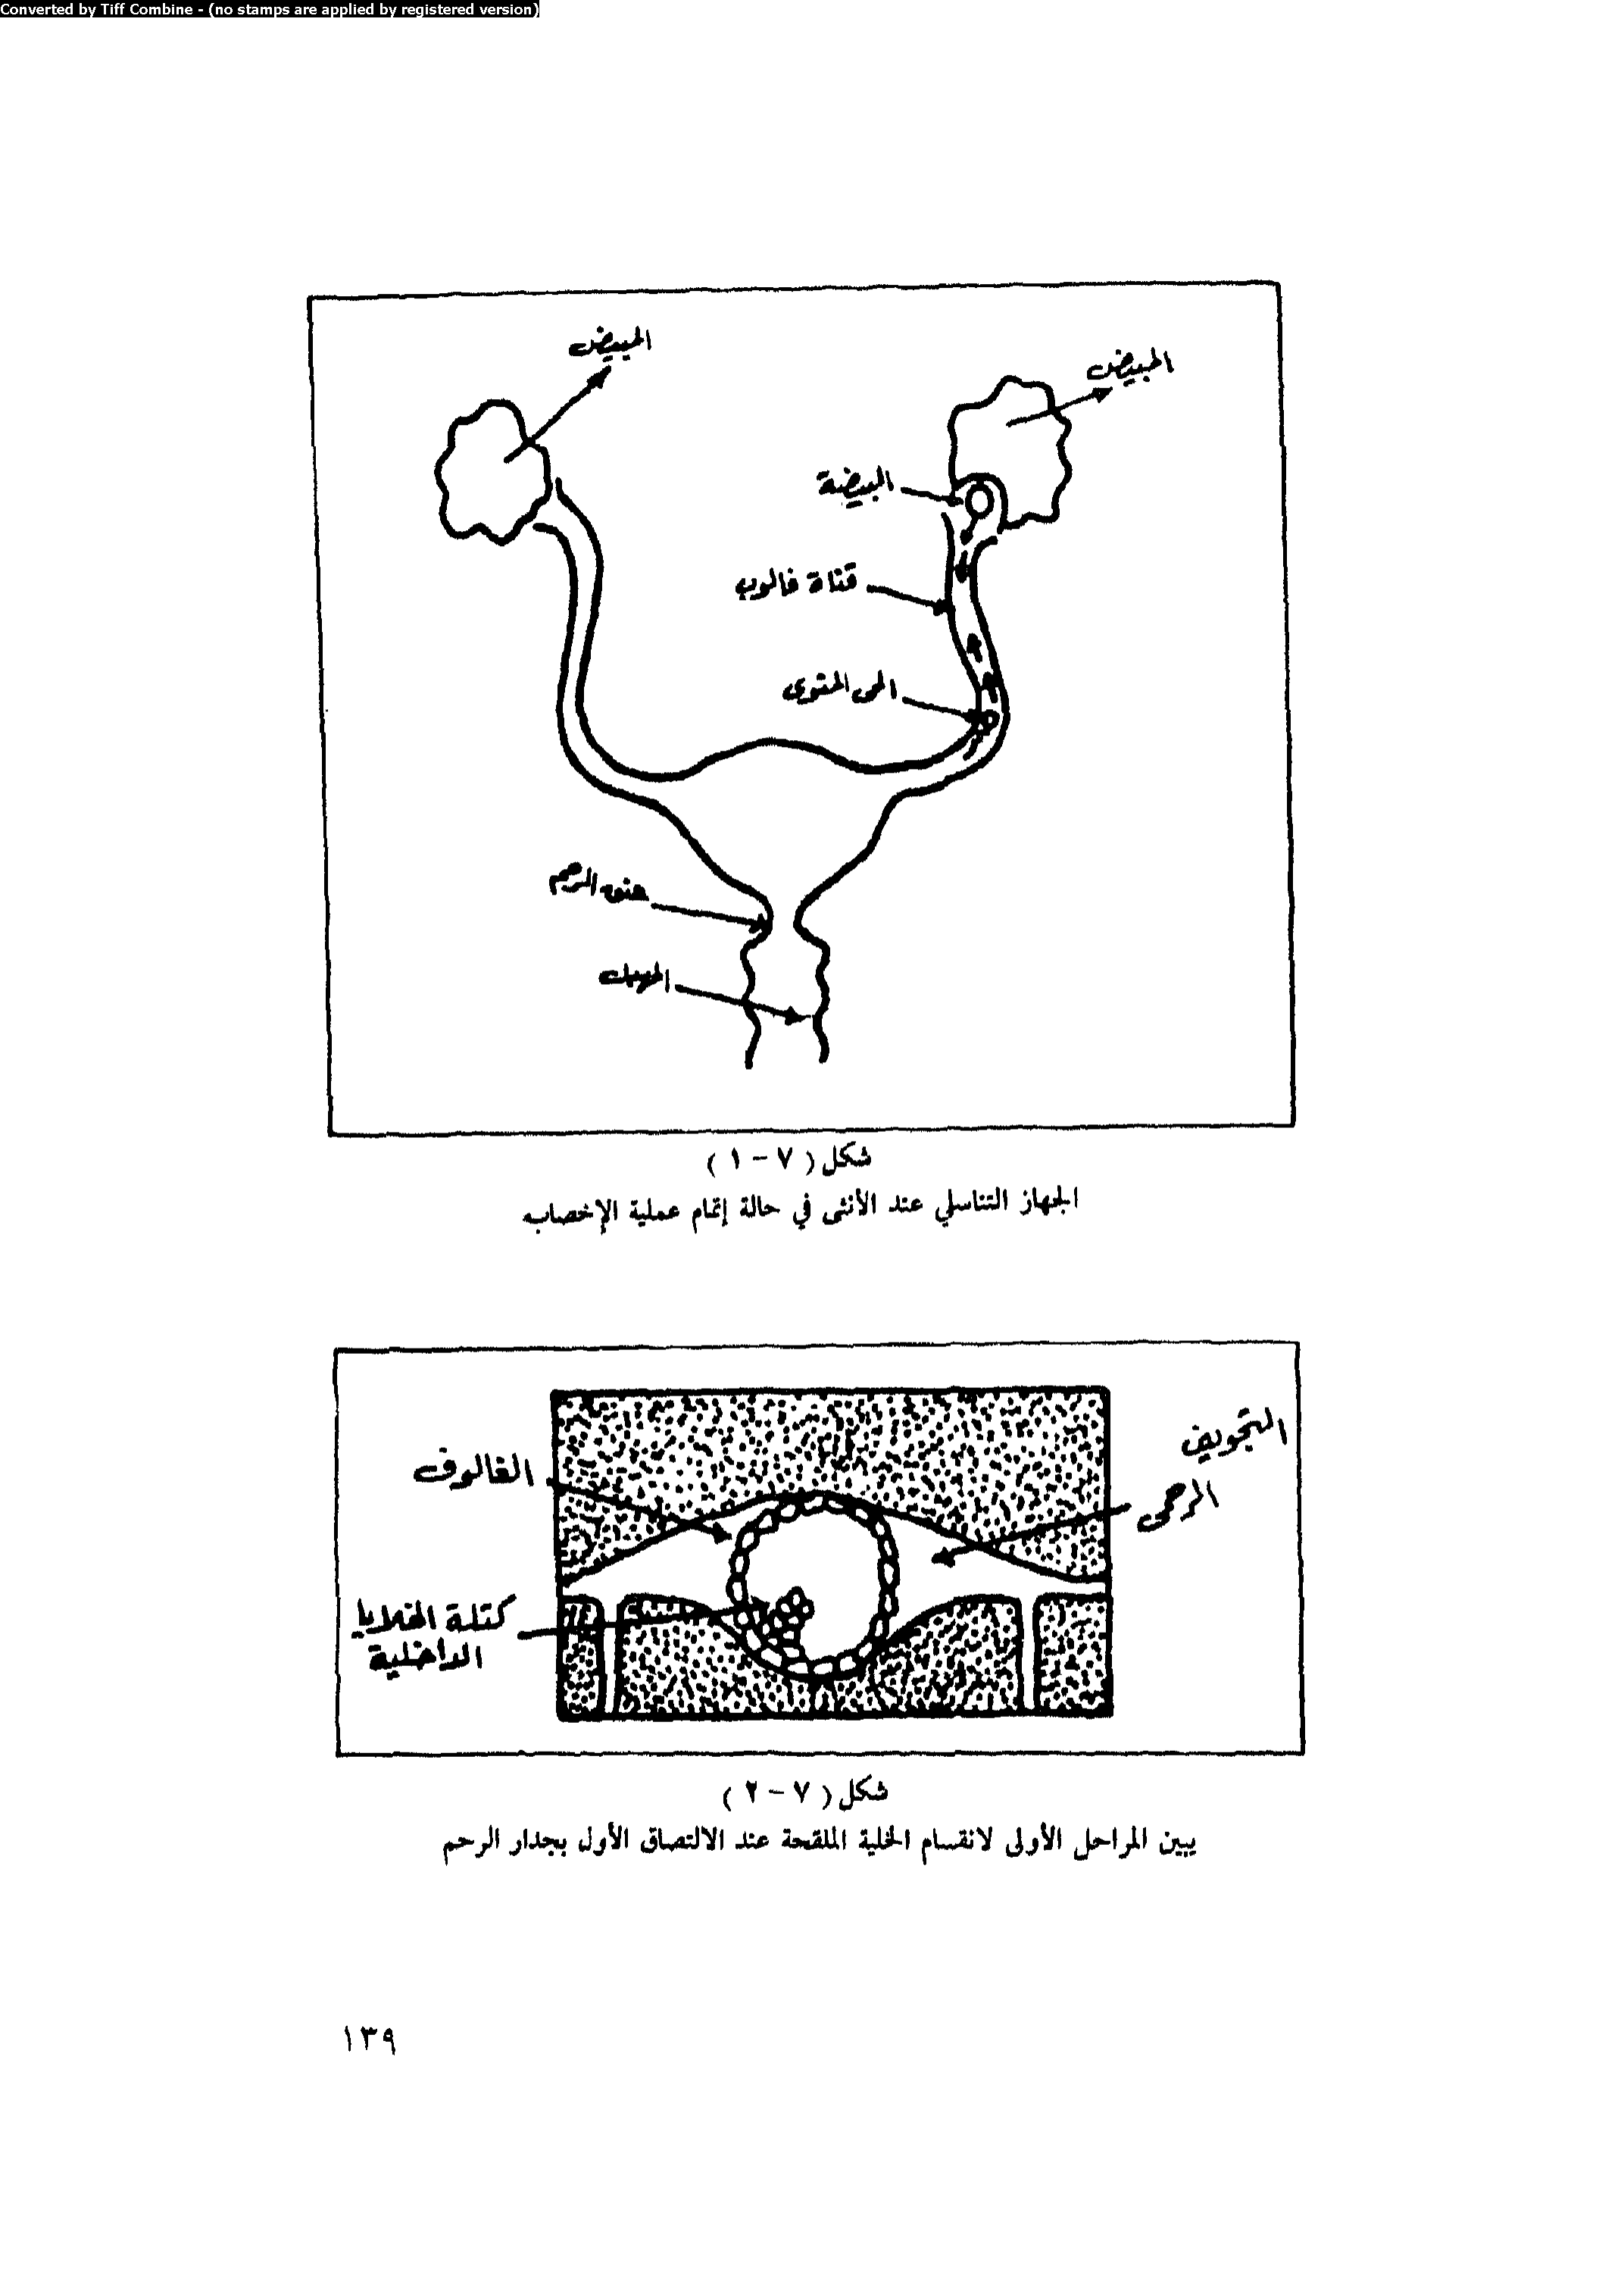 Converted by Tiff Combine - (no stamps are applied by registered version)
المبيض
المبيض
البيضة
قناة فالوب
الحى المنوى
عنق الرحم
المهبل
شكل ( ٧ - ١ )
الجهاز التناسلي عند الأنثى في حالة إتمام عملية الإخصاب
التجويف
الرحمى
الغالوف
كتلة الخلايا
الداخلية
شكل ( ٧ - ٢ )
يبين المراحل الأولى لانقسام الخلية الملقحة عند الالتصاق الأول بجدار الرحم
١٣٩